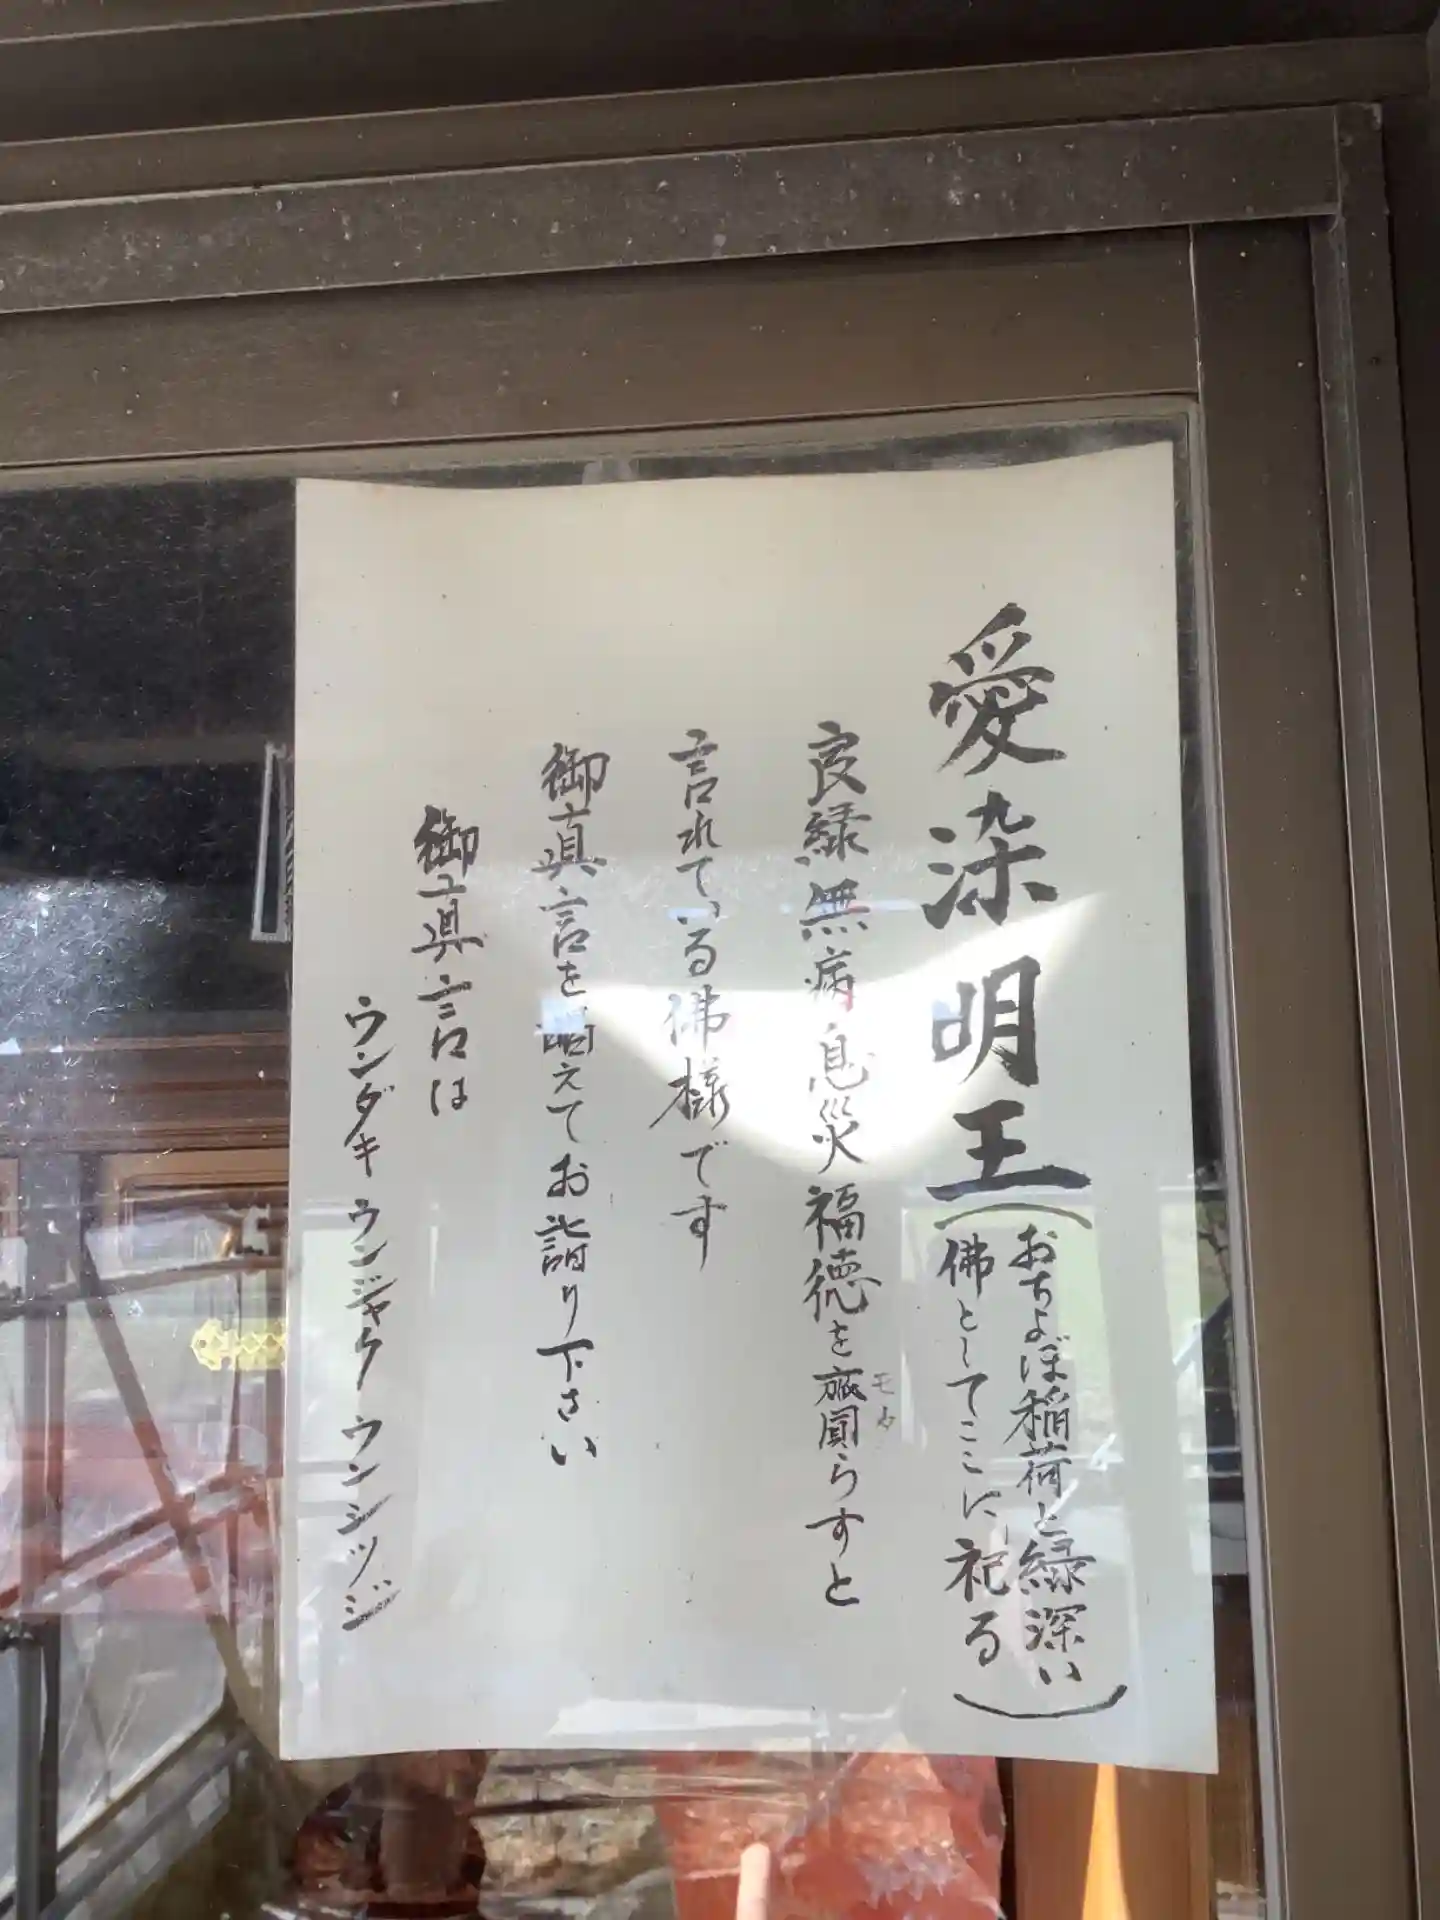 愛染明王
(おちよぼ稲荷と縁深い
佛としてここに祀る)
良縁無病息災福徳をらすと
モタ
言れている佛様です
御真言を唱えてお詣り下さい
御真言は
ウンダキ ウンジャク ウンシツジ